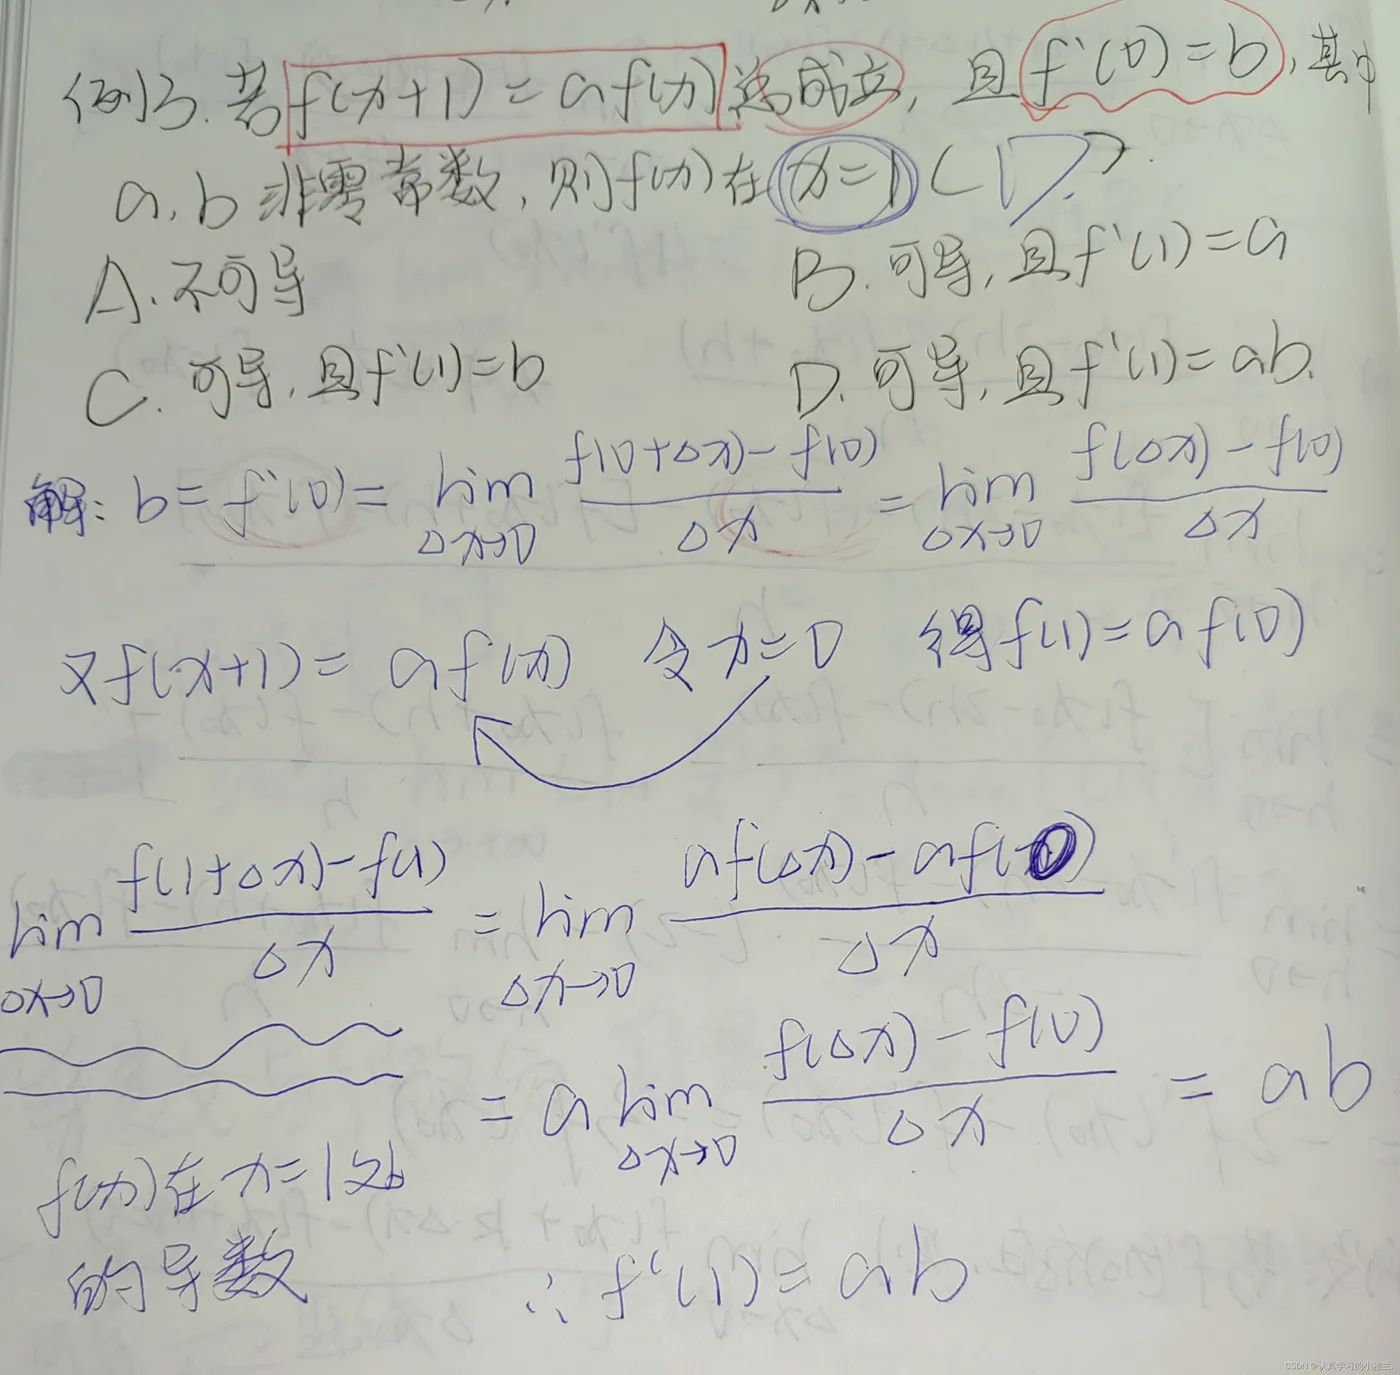 例13. 若f(x+1)=af(x)总成立, 且f'(0)=b, 其中
a,b非零常数, 则f(x)在x=1( D ).
A. 不可导 B. 可导, 且f'(1)=a
C. 可导, 且f'(1)=b D. 可导, 且f'(1)=ab.
解: b=f'(0)=lim Δx→0 (f(0+Δx)-f(0))/Δx = lim Δx→0 (f(Δx)-f(0))/Δx
又f(x+1)=af(x) 令x=0 得f(1)=af(0)
lim Δx→0 (f(1+Δx)-f(1))/Δx = lim Δx→0 (af(Δx)-af(0))/Δx
= a lim Δx→0 (f(Δx)-f(0))/Δx = ab
f(x)在x=1处
的导数
∴ f'(1)=ab
CSDN @认真学习的小潘兰.